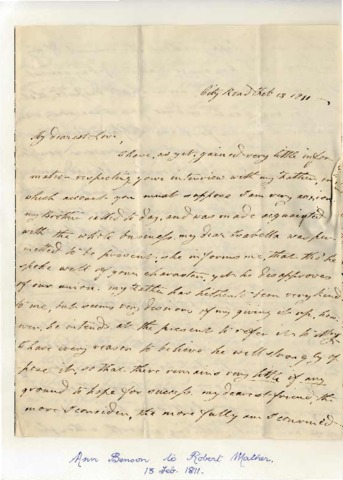 City Road Feb 13 1811
My dearest Love,
I have, as yet, gained very little infor
mation respecting your interview with my Father, on
which account you must suppose I am very anxious
my brother called to day, and was made acquainted
with the whole business, my dear Isabella was per
mitted to be present, she informs me, that tho' he
spoke well of your character, yet he disapproves
of our union. my Father has hitherto been very kind
to me, but seems very desirous of my giving it up, how
ever, he intends at the present to refer it to
I have every reason to believe he will strongly op
pose it, so that there remains very little if any
ground to hope for success. my dearest friend, the
more I consider, the more fully am I convinced
Ann Benson to Robert Mather.
13 Feb. 1811.